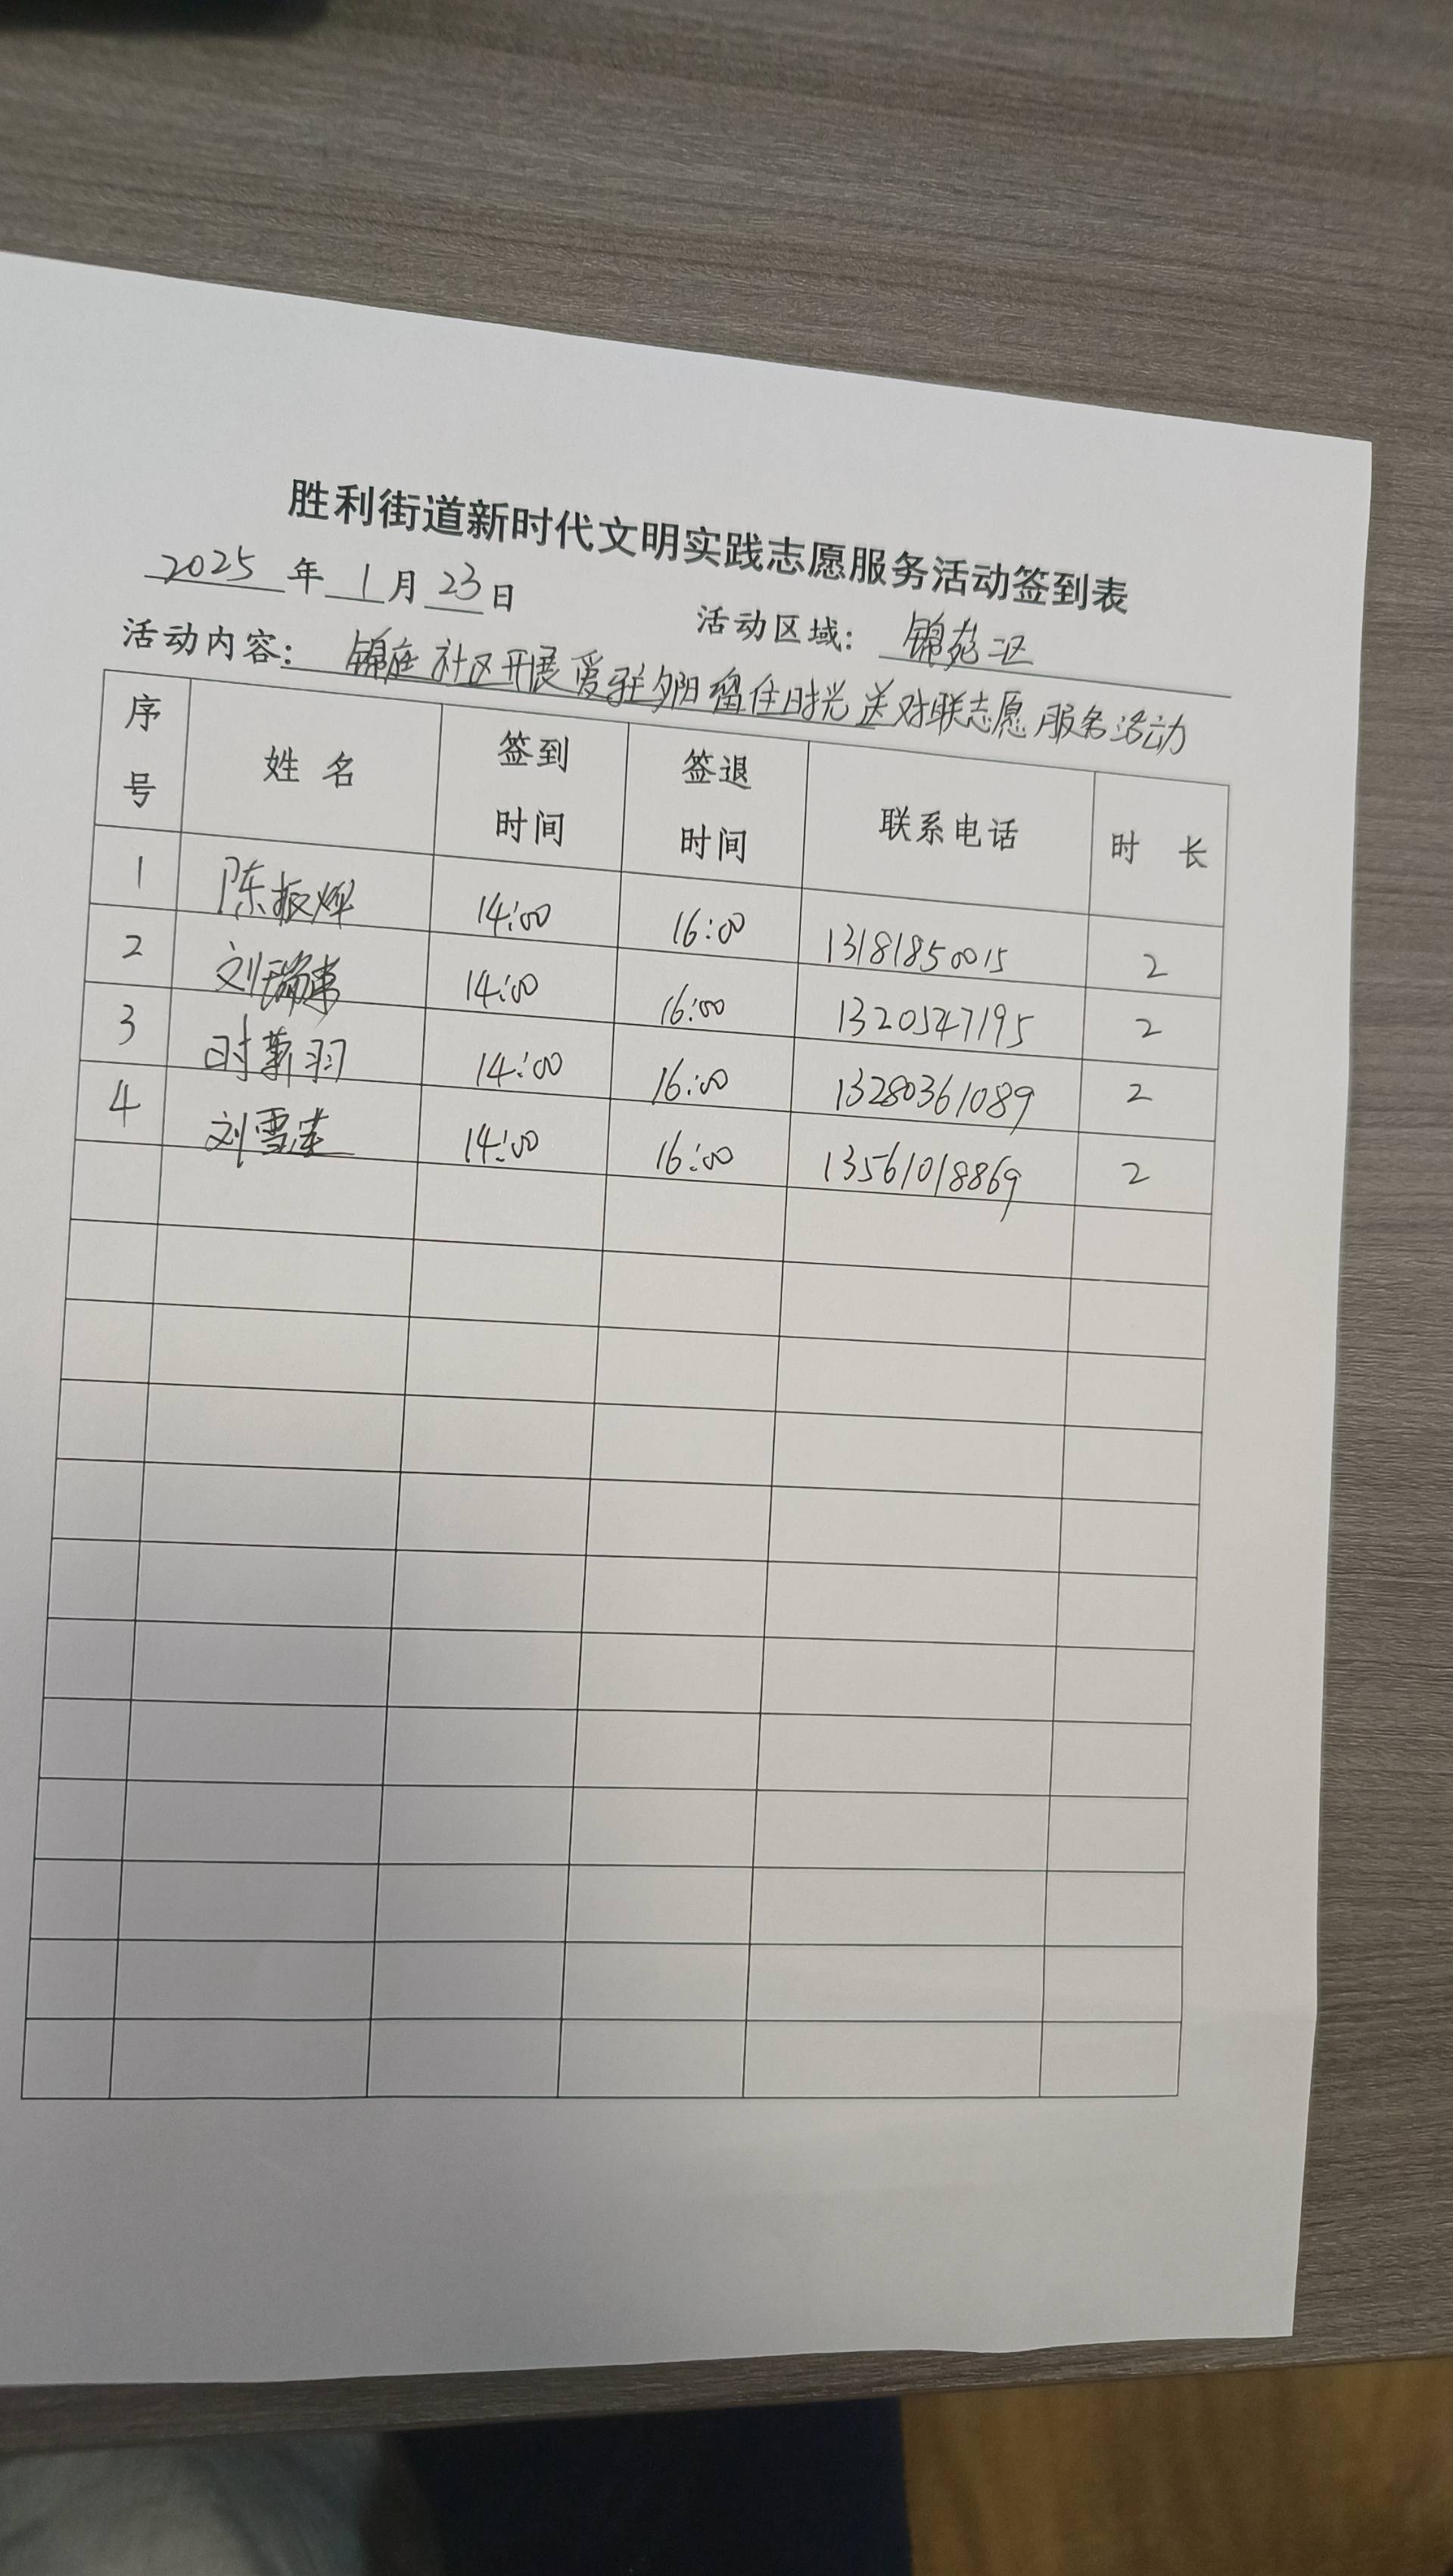 胜利街道新时代文明实践志愿服务活动签到表
2025 年 1 月 23 日 活动区域: 锦苑二区
活动内容: 锦苑社区开展爱驻夕阳 留住时光 送对联志愿服务活动
序号 姓名 签到时间 签退时间 联系电话 时长
1 陈振烨 14:00 16:00 13181850015 2
2 刘瑞 14:00 16:00 13205471195 2
3 时 羽 14:00 16:00 13280361089 2
4 刘雪莲 14:00 16:00 13561018869 2